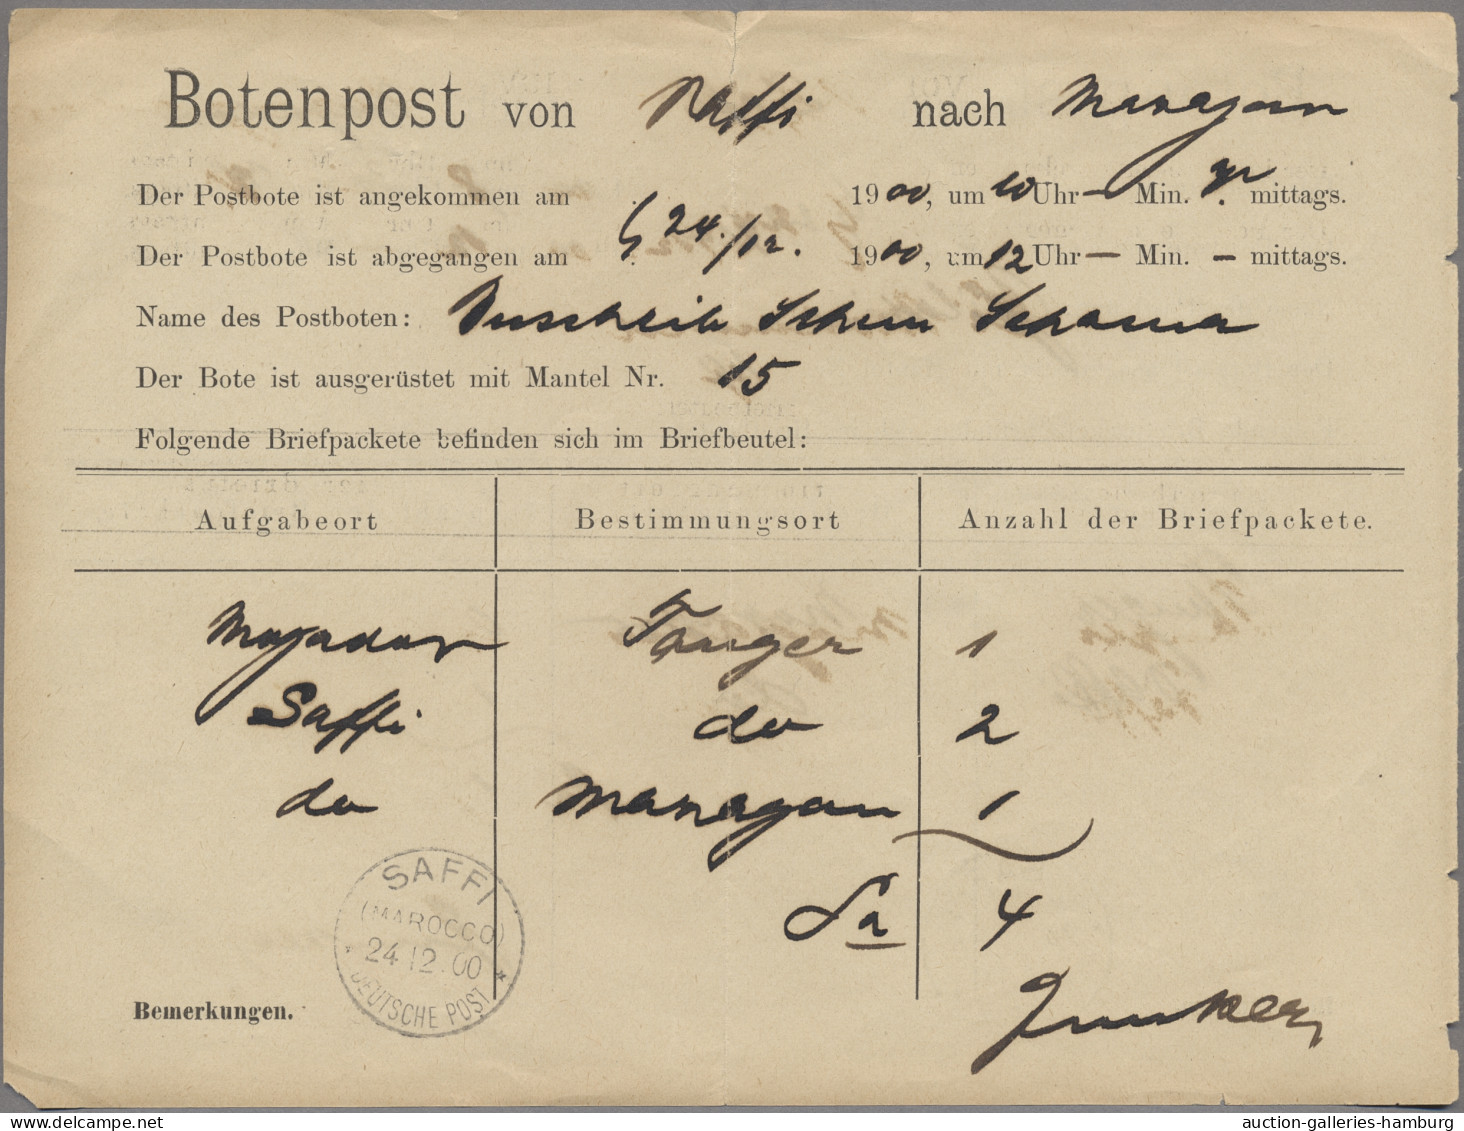 Botenpost von Saffi nach Mazagan
Der Postbote ist angekommen am 1900, um 10 Uhr — Min. mittags.
24./12.
Der Postbote ist abgegangen am 1900, um 12 Uhr — Min. — mittags.
Name des Postboten: Buscheib
Der Bote ist ausgerüstet mit Mantel Nr. 15
Folgende Briefpackete befinden sich im Briefbeutel:
Aufgabeort Bestimmungsort Anzahl der Briefpackete.
Mogador Tanger 1
Saffi do 2
do Mazagan 1
Sa 4
SAFFI
(MAROCCO)
24 12.00
* DEUTSCHE POST *
Bemerkungen.
auction-galleries-hamburg.com